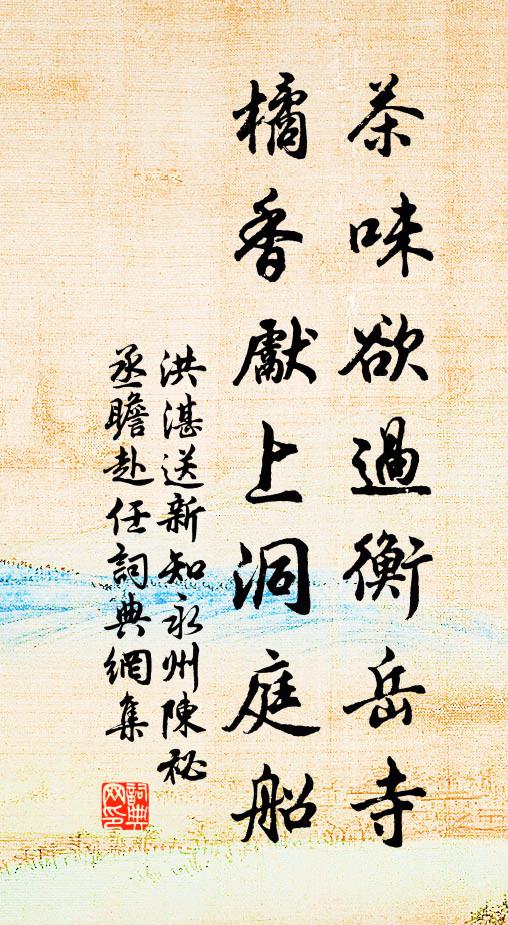 茶味欲過衡岳寺
橘香獻上洞庭船
洪湛送新知永州陳祕
丞瞻赴任詞典網集
詞典網印